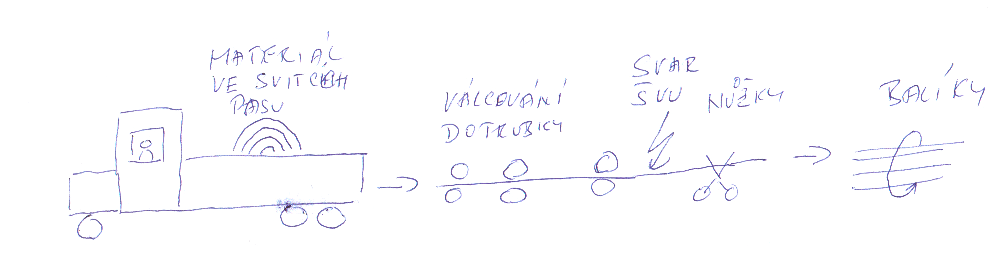 MATERIÁL
VE SVITCÍCH
PASU
VÁLCOVÁNÍ
DOTRUBKY
SVAR
ŠVU
NŮŽKY
BALÍKY